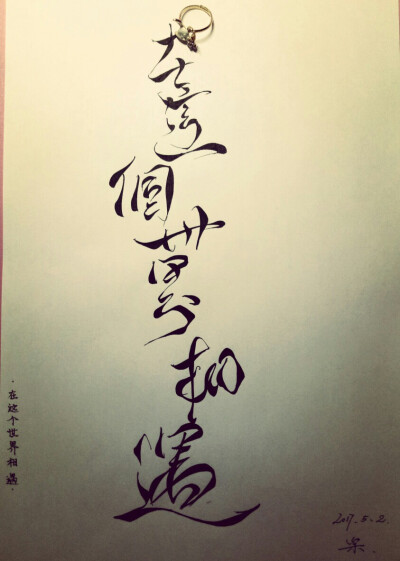 在這個世界相遇
·在这个世界相遇·
2017.5.2